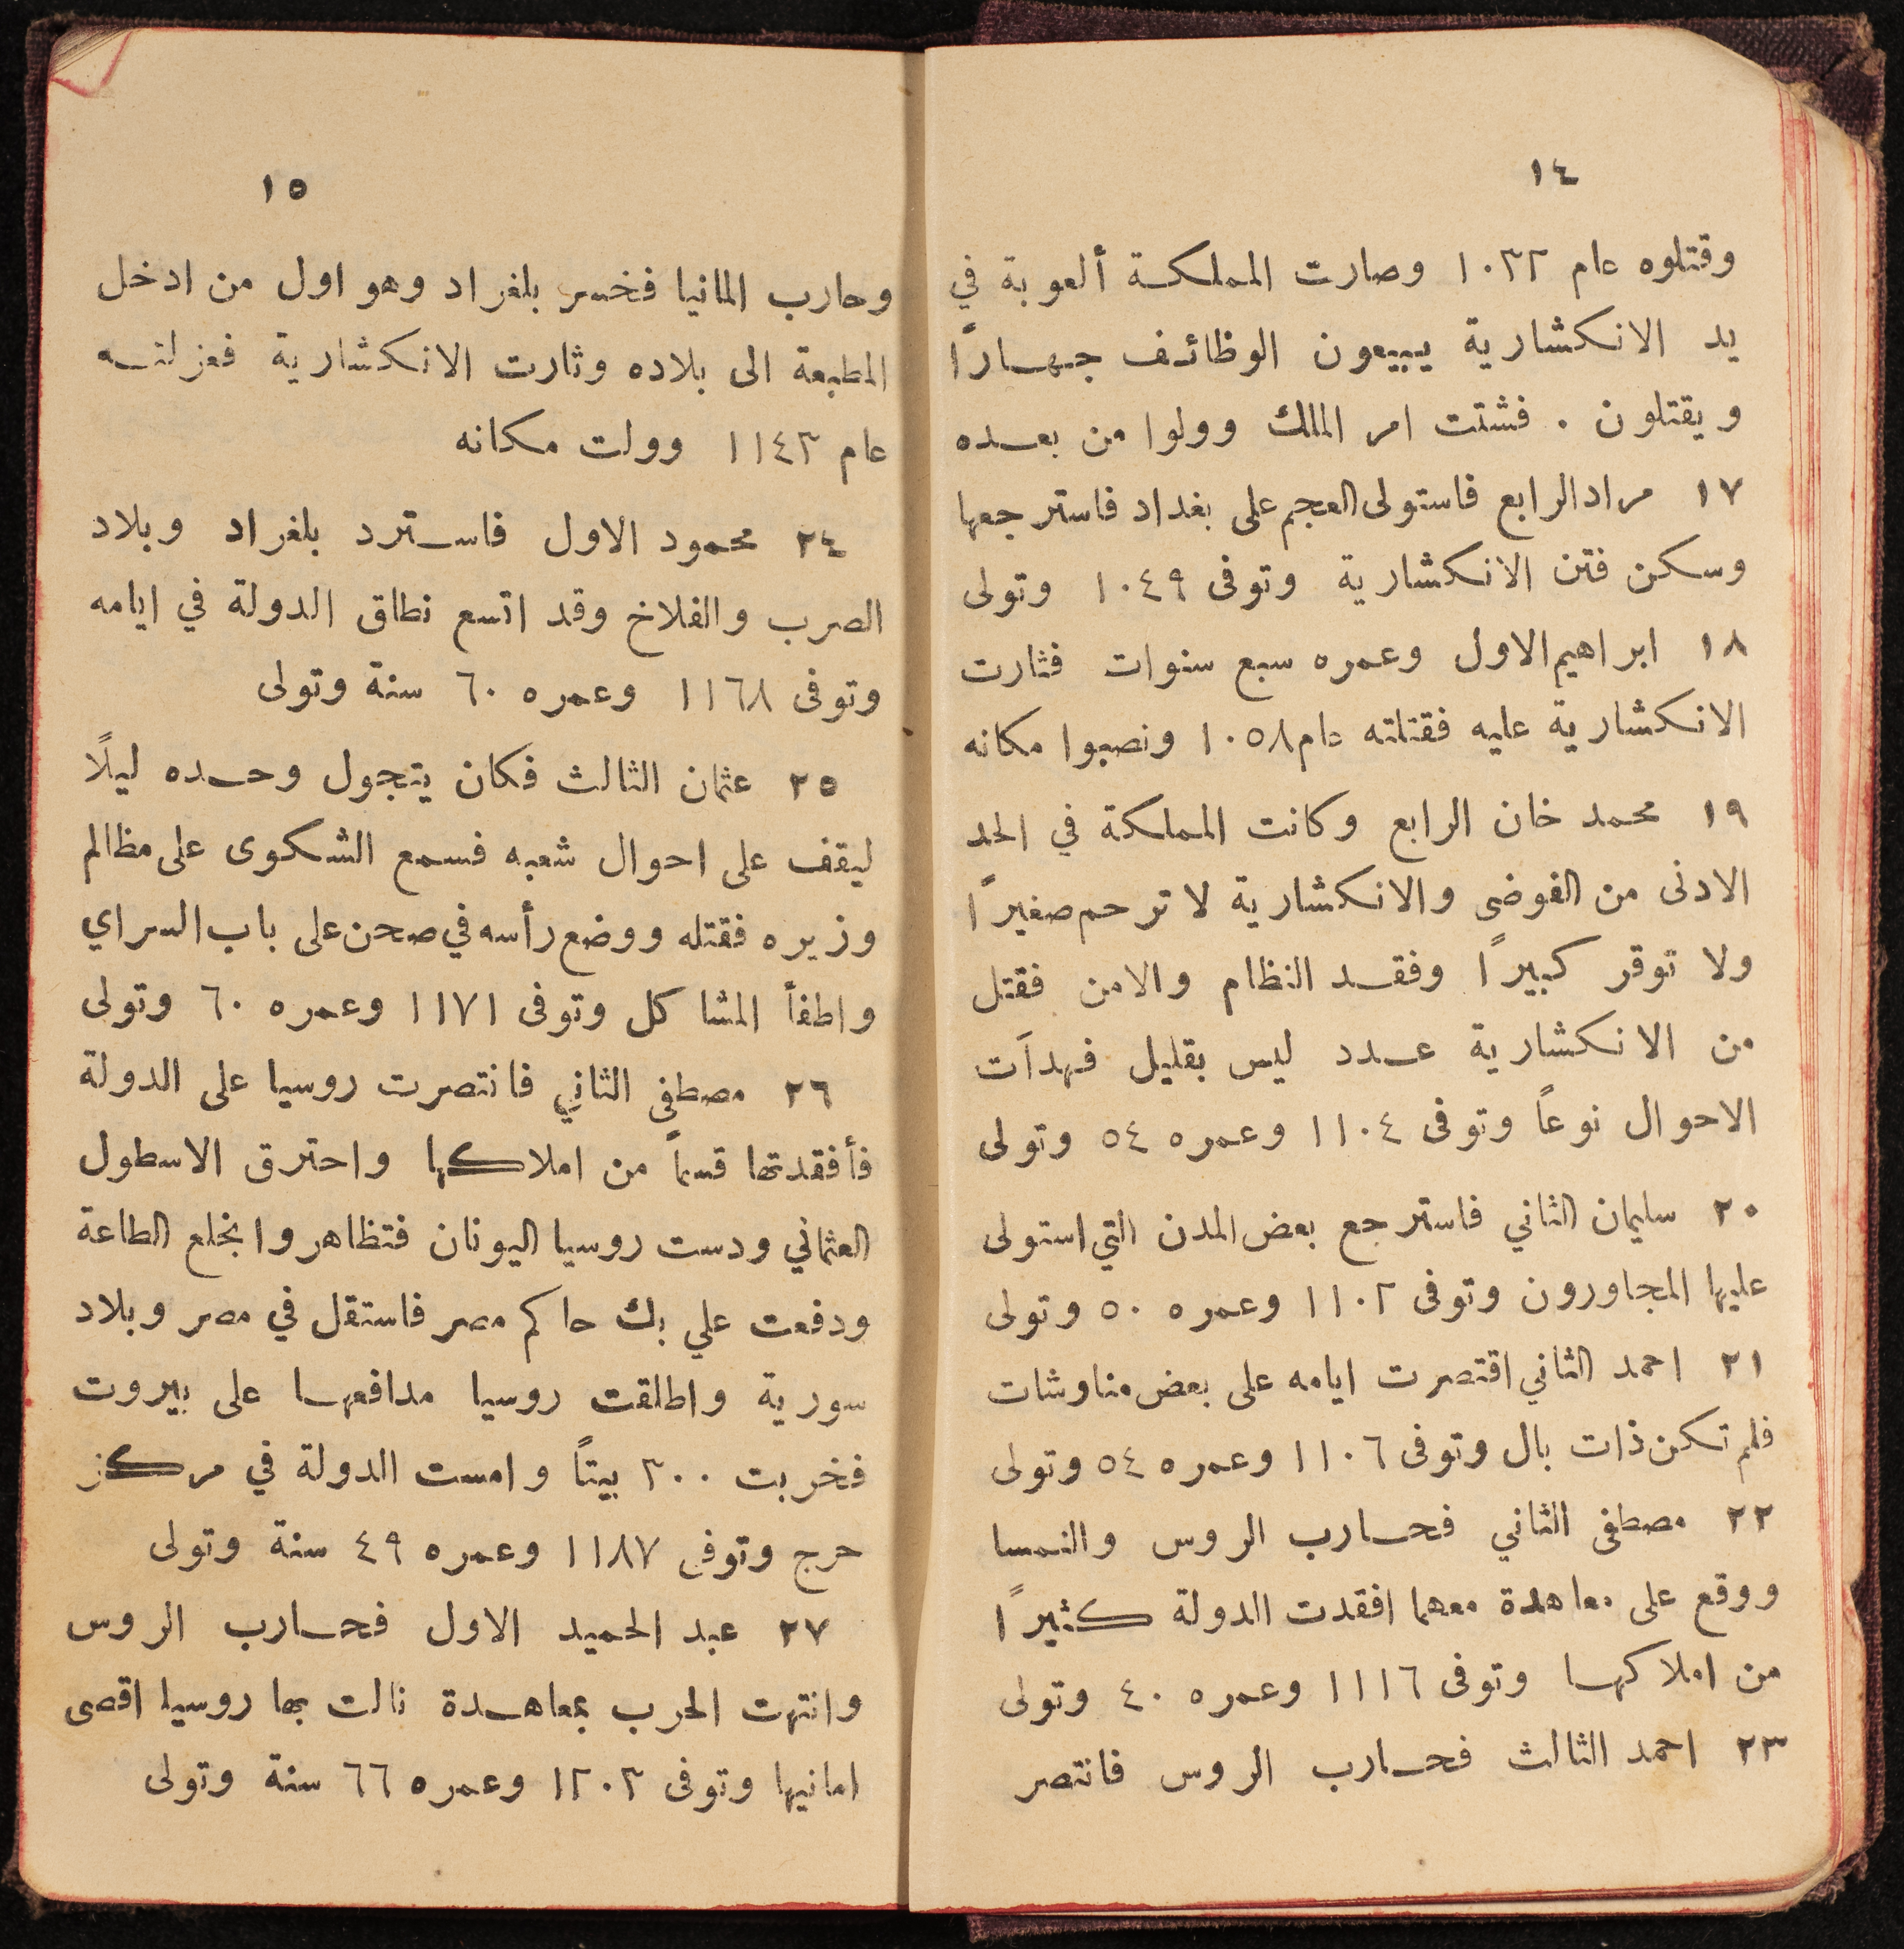 ١٤
وقتلوه عام ١٠٣٢ وصارت المملكة ألعوبة في
يد الانكشارية يبيعون الوظائف جهارًا
ويقتلون . فشتت امر الملك وولوا من بعده
١٧ مراد الرابع فاستولى العجم على بغداد فاسترجعها
وسكن فتن الانكشارية وتوفى ١٠٤٩ وتولى
١٨ ابراهيم الاول وعمره سبع سنوات فثارت
الانكشارية عليه فقتلته عام ١٠٥٨ ونصبوا مكانه
١٩ محمد خان الرابع وكانت المملكة في الحد
الادنى من الفوضى والانكشارية لا ترحم صغيرًا
ولا توقر كبيرًا وفقد النظام والامن فقتل
من الانكشارية عدد ليس بقليل فهدآت
الاحوال نوعاً وتوفى ١١٠٤ وعمره ٥٤ وتولى
٢٠ سليمان الثاني فاسترجع بعض المدن التي استولى
عليها المجاورون وتوفى ١١٠٢ وعمره ٥٠ وتولى
٢١ احمد الثاني اقتصرت ايامه على بعض مناوشات
فلم تكن ذات بال وتوفى ١١٠٦ وعمره ٥٤ وتولى
٢٢ مصطفى الثاني فحارب الروس والنمسا
ووقع على معاهدة معهما افقدت الدولة كثيرًا
من املاكها وتوفى ١١١٦ وعمره ٤٠ وتولى
٢٣ احمد الثالث فحارب الروس فانتصر
١٥
وحارب المانيا فخسر بلغراد وهو اول من ادخل
المطبعة الى بلاده وثارت الانكشارية فعزلته
عام ١١٤٣ وولت مكانه
٢٤ محمود الاول فاسترد بلغراد وبلاد
الصرب والفلاخ وقد اتسع نطاق الدولة في ايامه
وتوفى ١١٦٨ وعمره ٦٠ سنة وتولى
٢٥ عثمان الثالث فكان يتجول وحده ليلًا
ليقف على احوال شعبه فسمع الشكوى على مظالم
وزيره فقتله ووضع رأسه في صحن على باب السراي
واطفأ المشاكل وتوفى ١١٧١ وعمره ٦٠ وتولى
٢٦ مصطفى الثاني فانتصرت روسيا على الدولة
فأفقدتها قسماً من املاكها واحترق الاسطول
العثماني ودست روسيا اليونان فتظاهروا بخلع الطاعة
ودفعت علي بك حاكم مصر فاستقل في مصر وبلاد
سورية واطلقت روسيا مدافعها على بيروت
فخربت ٣٠٠ بيتاً وامست الدولة في مركز
حرج وتوفى ١١٨٧ وعمره ٤٩ سنة وتولى
٢٧ عبد الحميد الاول فحارب الروس
وانتهت الحرب بمعاهدة نالت بها روسيا اقصى
امانيها وتوفى ١٢٠٣ وعمره ٦٦ سنة وتولى